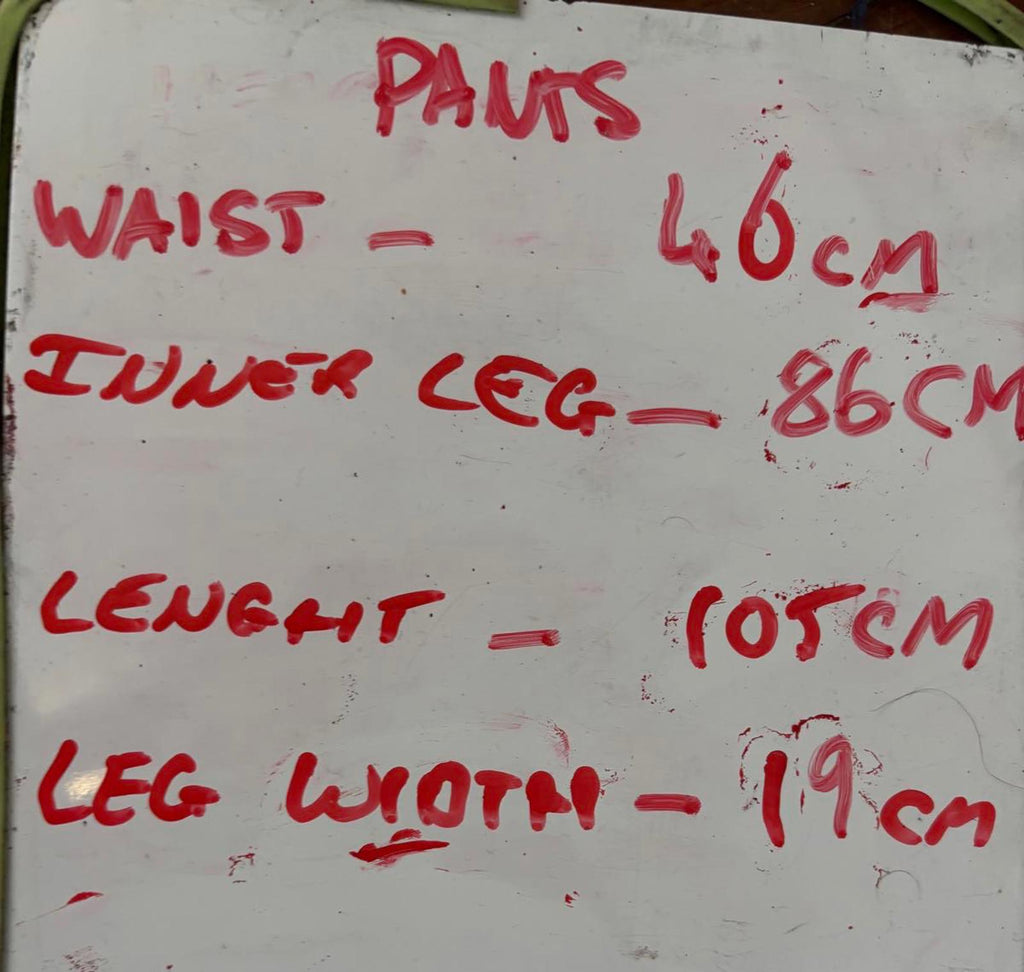 PANTS
WAIST - 46CM
INNER LEG - 86CM
LENGHT - 105CM
LEG WIDTH - 19CM